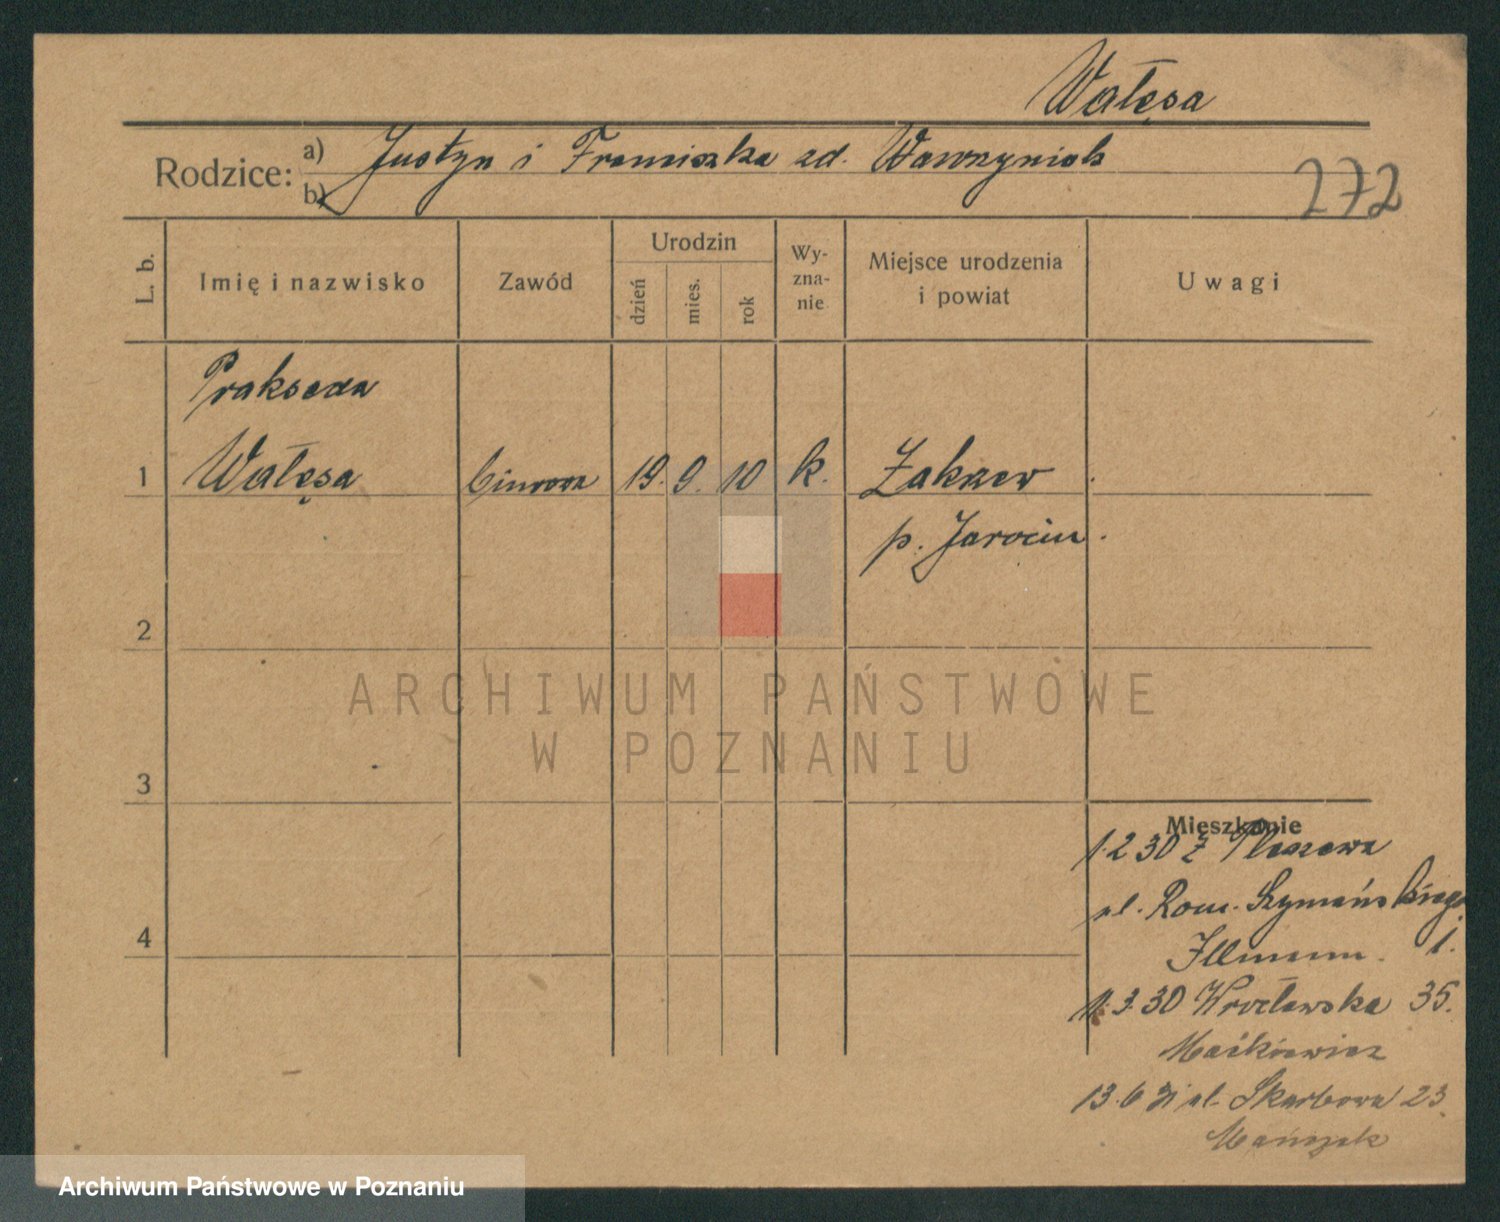 Wałęsa
Rodzice: a) Justyn i Franciszka zd. Wawrzyniak
b)
272
L. b.
Imię i nazwisko
Zawód
Urodzin
dzień
mies.
rok
Wy-
zna-
nie
Miejsce urodzenia
i powiat
Uwagi
Prakseda
1 Wałęsa biurowa 19. 9. 10 k. Zakrzew
p. Jarocin
2
3
4
ARCHIWUM PAŃSTWOWE
W POZNANIU
Mieszkanie
1.2 30 z Pleszewa
ul. Rom. Szymańskiego
1.
1.3.30 Wrocławska 35.
Maćkowiak
13.6 31 ul. Skarbowa 23
Archiwum Państwowe w Poznaniu